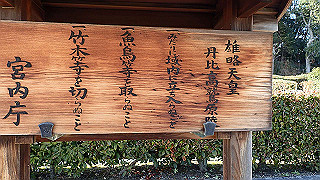 雄略天皇
丹比高鷲原陵
一みだりに域内に立入らぬこと
一魚鳥等を取らぬこと
一竹木等を切らぬこと
宮内庁